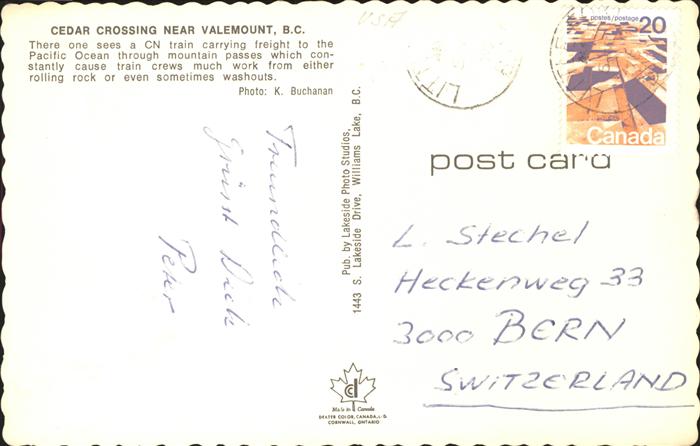 CEDAR CROSSING NEAR VALEMOUNT, B.C.
There one sees a CN train carrying freight to the
Pacific Ocean through mountain passes which con-
stantly cause train crews much work from either
rolling rock or even sometimes washouts.
Photo: K. Buchanan
USA
postes/postage 20
Canada
post card
Freundlich
Grüsst Dich
Peter
Pub. by Lakeside Photo Studios,
1443 S. Lakeside Drive, Williams Lake, B.C.
L. Stechel
Heckenweg 33
3000 BERN
SWITZERLAND
Made in Canada
DEXTER COLOR, CANADA, LTD.
CORNWALL, ONTARIO